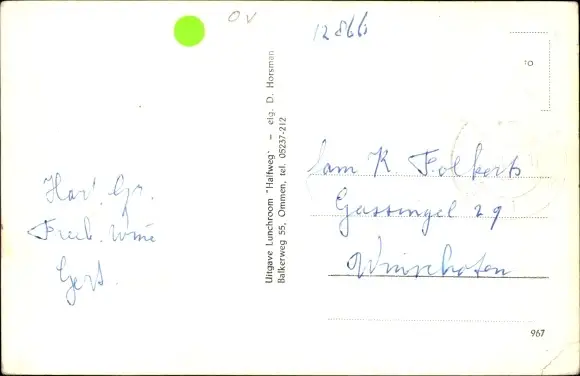 OV
12866
Uitgave Lunchroom "Halfweg" - eig. D. Horsman
Balkerweg 55, Ommen, tel. 05237-212
Fam K Folkerts
Gassingel 29
Winschoten
Hart. Gr.
Gert.
967